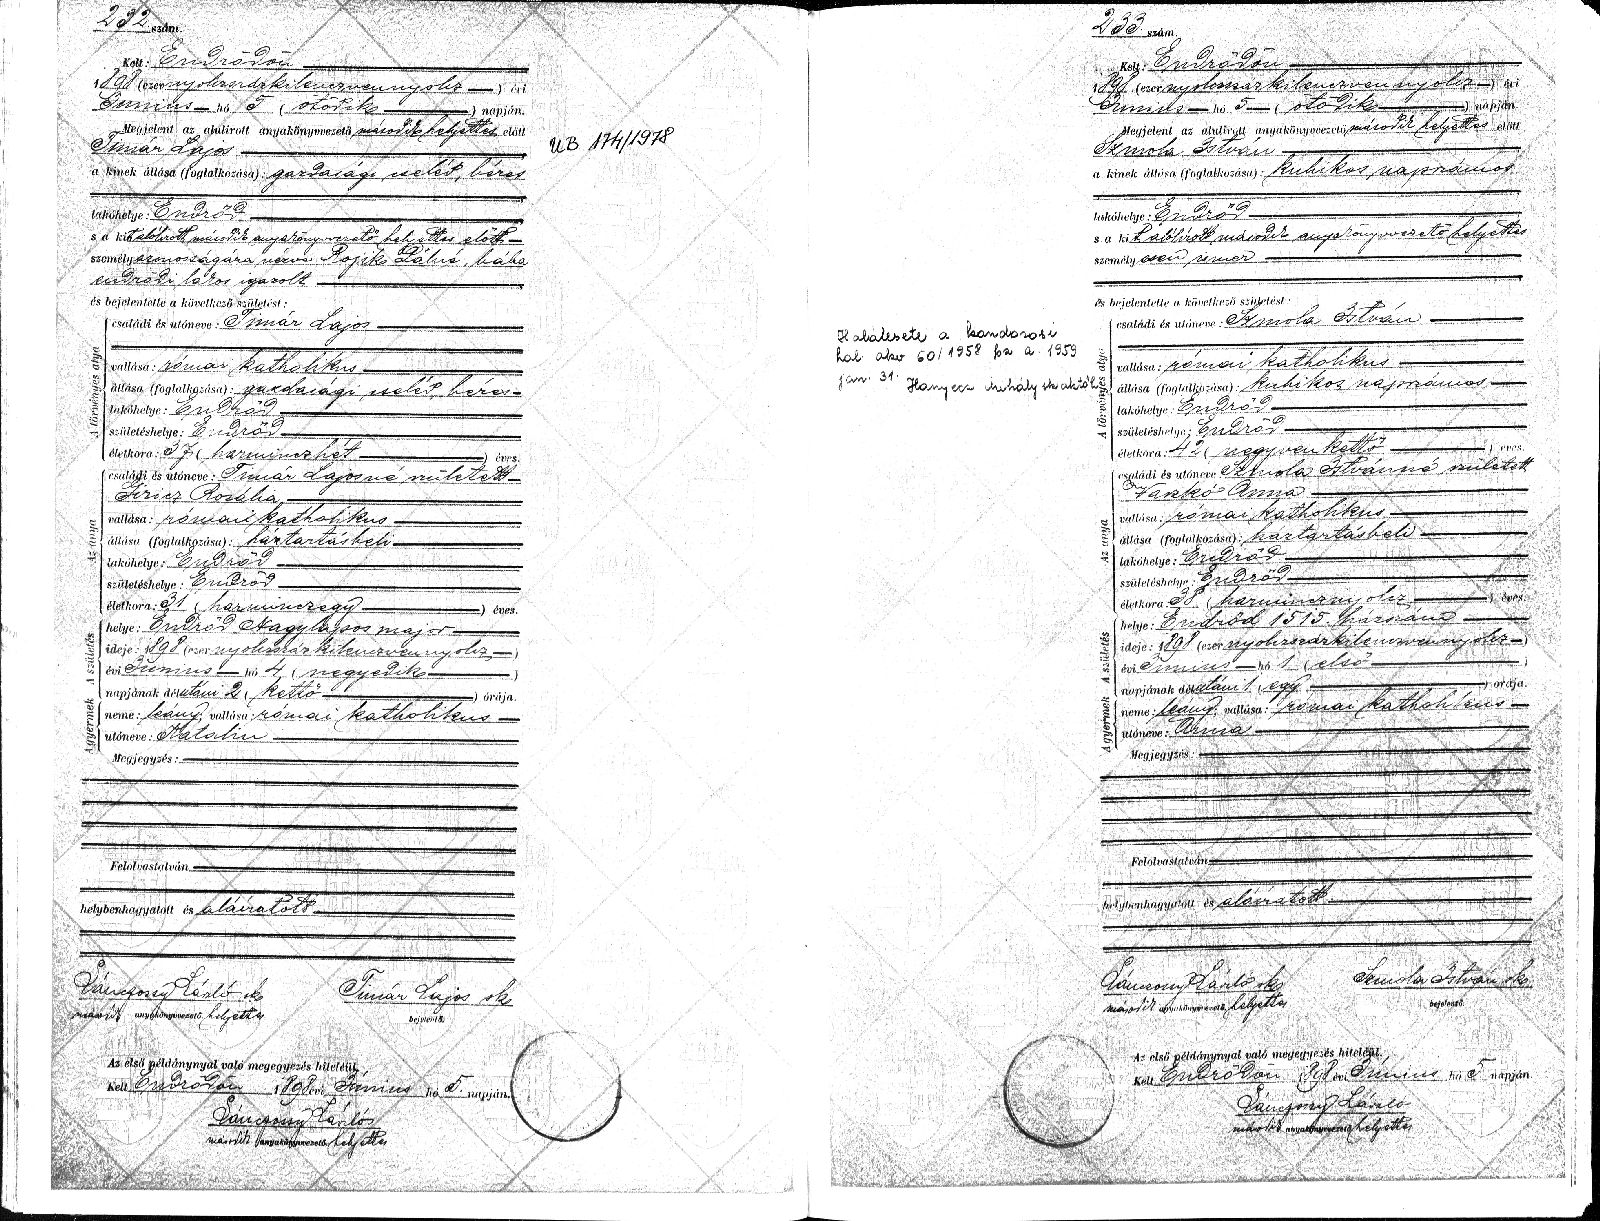 232 szám.
Kelt: Endrődön
1898 (ezer nyolczszázkilenczvennyolcz) évi
Június hó 5 (ötödik) napján.
Megjelent az alulirott anyakönyvvezető második helyettes előtt
Timár Lajos
a kinek állása (foglalkozása): gazdasági cseléd, béres
lakóhelye: Endrőd
s a kit alólirott második anyakönyvvezető helyettes előtt
személyazonosságára nézve Pálné, bába
endrődi lakos igazolt
és bejelentette a következő születést:
A törvényes atya
családi és utóneve: Timár Lajos
vallása: római katholikus
állása (foglalkozása): gazdasági cseléd, béres
lakóhelye: Endrőd
születéshelye: Endrőd
életkora: 37 (harminczhét) éves.
Az anya
családi és utóneve: Timár Lajosné született
Giricz Rozália
vallása: római katholikus
állása (foglalkozása): háztartásbeli
lakóhelye: Endrőd
születéshelye: Endrőd
életkora: 31 (harminczegy) éves.
A születés
helye: Endrőd Nagylapos major
ideje: 1898 (ezer nyolczszázkilenczvennyolcz)
évi Június hó 4 (negyedik)
napjának délutáni 2 (kettő) órája.
A gyermek
neme: leány, vallása: római katholikus
utóneve: Katalin
Megjegyzés:
Felolvastatván
helybenhagyatott és aláíratott
László sk Timár Lajos sk
második anyakönyvvezető helyettes bejelentő.
Az első példánynyal való megegyezés hiteléül.
Kelt Endrődön 1898 évi Június hó 5 napján.
László
második anyakönyvvezető helyettes
UB 174/1978
233 szám.
Kelt: Endrődön
1898 (ezer nyolczszázkilenczvennyolcz) évi
Június hó 5 (ötödik) napján
Megjelent az alulirott anyakönyvvezető második helyettes előtt
Szmola István
a kinek állása (foglalkozása): kubikos napszámos
lakóhelye: Endrőd
s a kit alólirott második anyakönyvvezető helyettes
személyesen ismer
és bejelentette a következő születést:
A törvényes atya
családi és utóneve: Szmola István
vallása: római katholikus
állása (foglalkozása): kubikos napszámos
lakóhelye: Endrőd
születéshelye: Endrőd
életkora: 42 (negyvenkettő) éves.
Az anya
családi és utóneve Szmola Istvánné született
Vaszkó Anna
vallása: római katholikus
állása (foglalkozása): háztartásbeli
lakóhelye: Endrőd
születéshelye: Endrőd
életkora 38 (harmincznyolcz) éves.
A születés
helye: Endrőd 1515 házszám
ideje: 1898 (ezer nyolczszázkilenczvennyolcz)
évi Június hó 1 (első)
napjának délutáni 1 (egy) órája.
A gyermek
neme: leány, vallása: római katholikus
utóneve: Anna
Megjegyzés:
Felolvastatván
helybenhagyatott és aláíratott
László sk Szmola István sk.
második anyakönyvvezető helyettes bejelentő.
Az első példánynyal való megegyezés hiteléül.
Kelt Endrődön 1898 évi Június hó 5 napján.
László
második anyakönyvvezető helyettes
Halálesete a kondorosi
hal akv 60/1958 fsz a. 1959
jan. 31. Hanyecz Mihály sk aktól